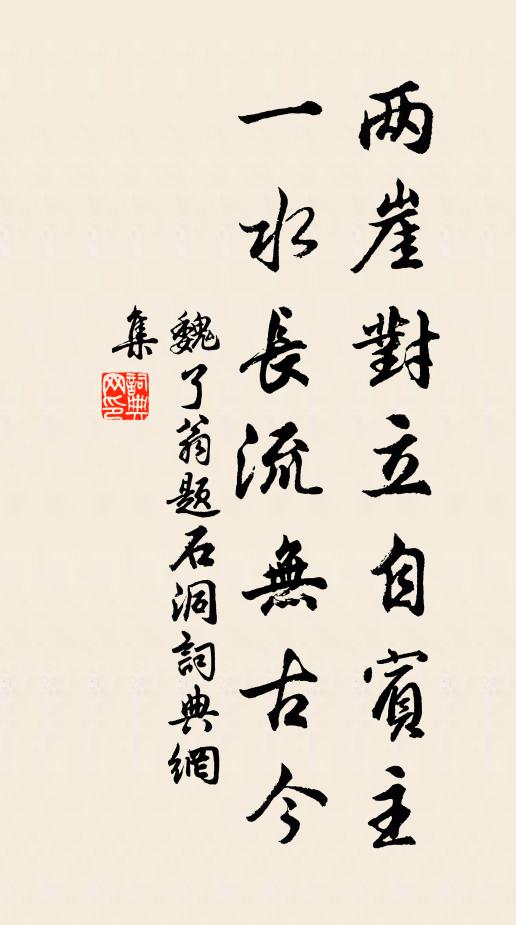 两崖對立自賓主
一水長流無古今
魏了翁题石洞詞典網
集
詞典
网印